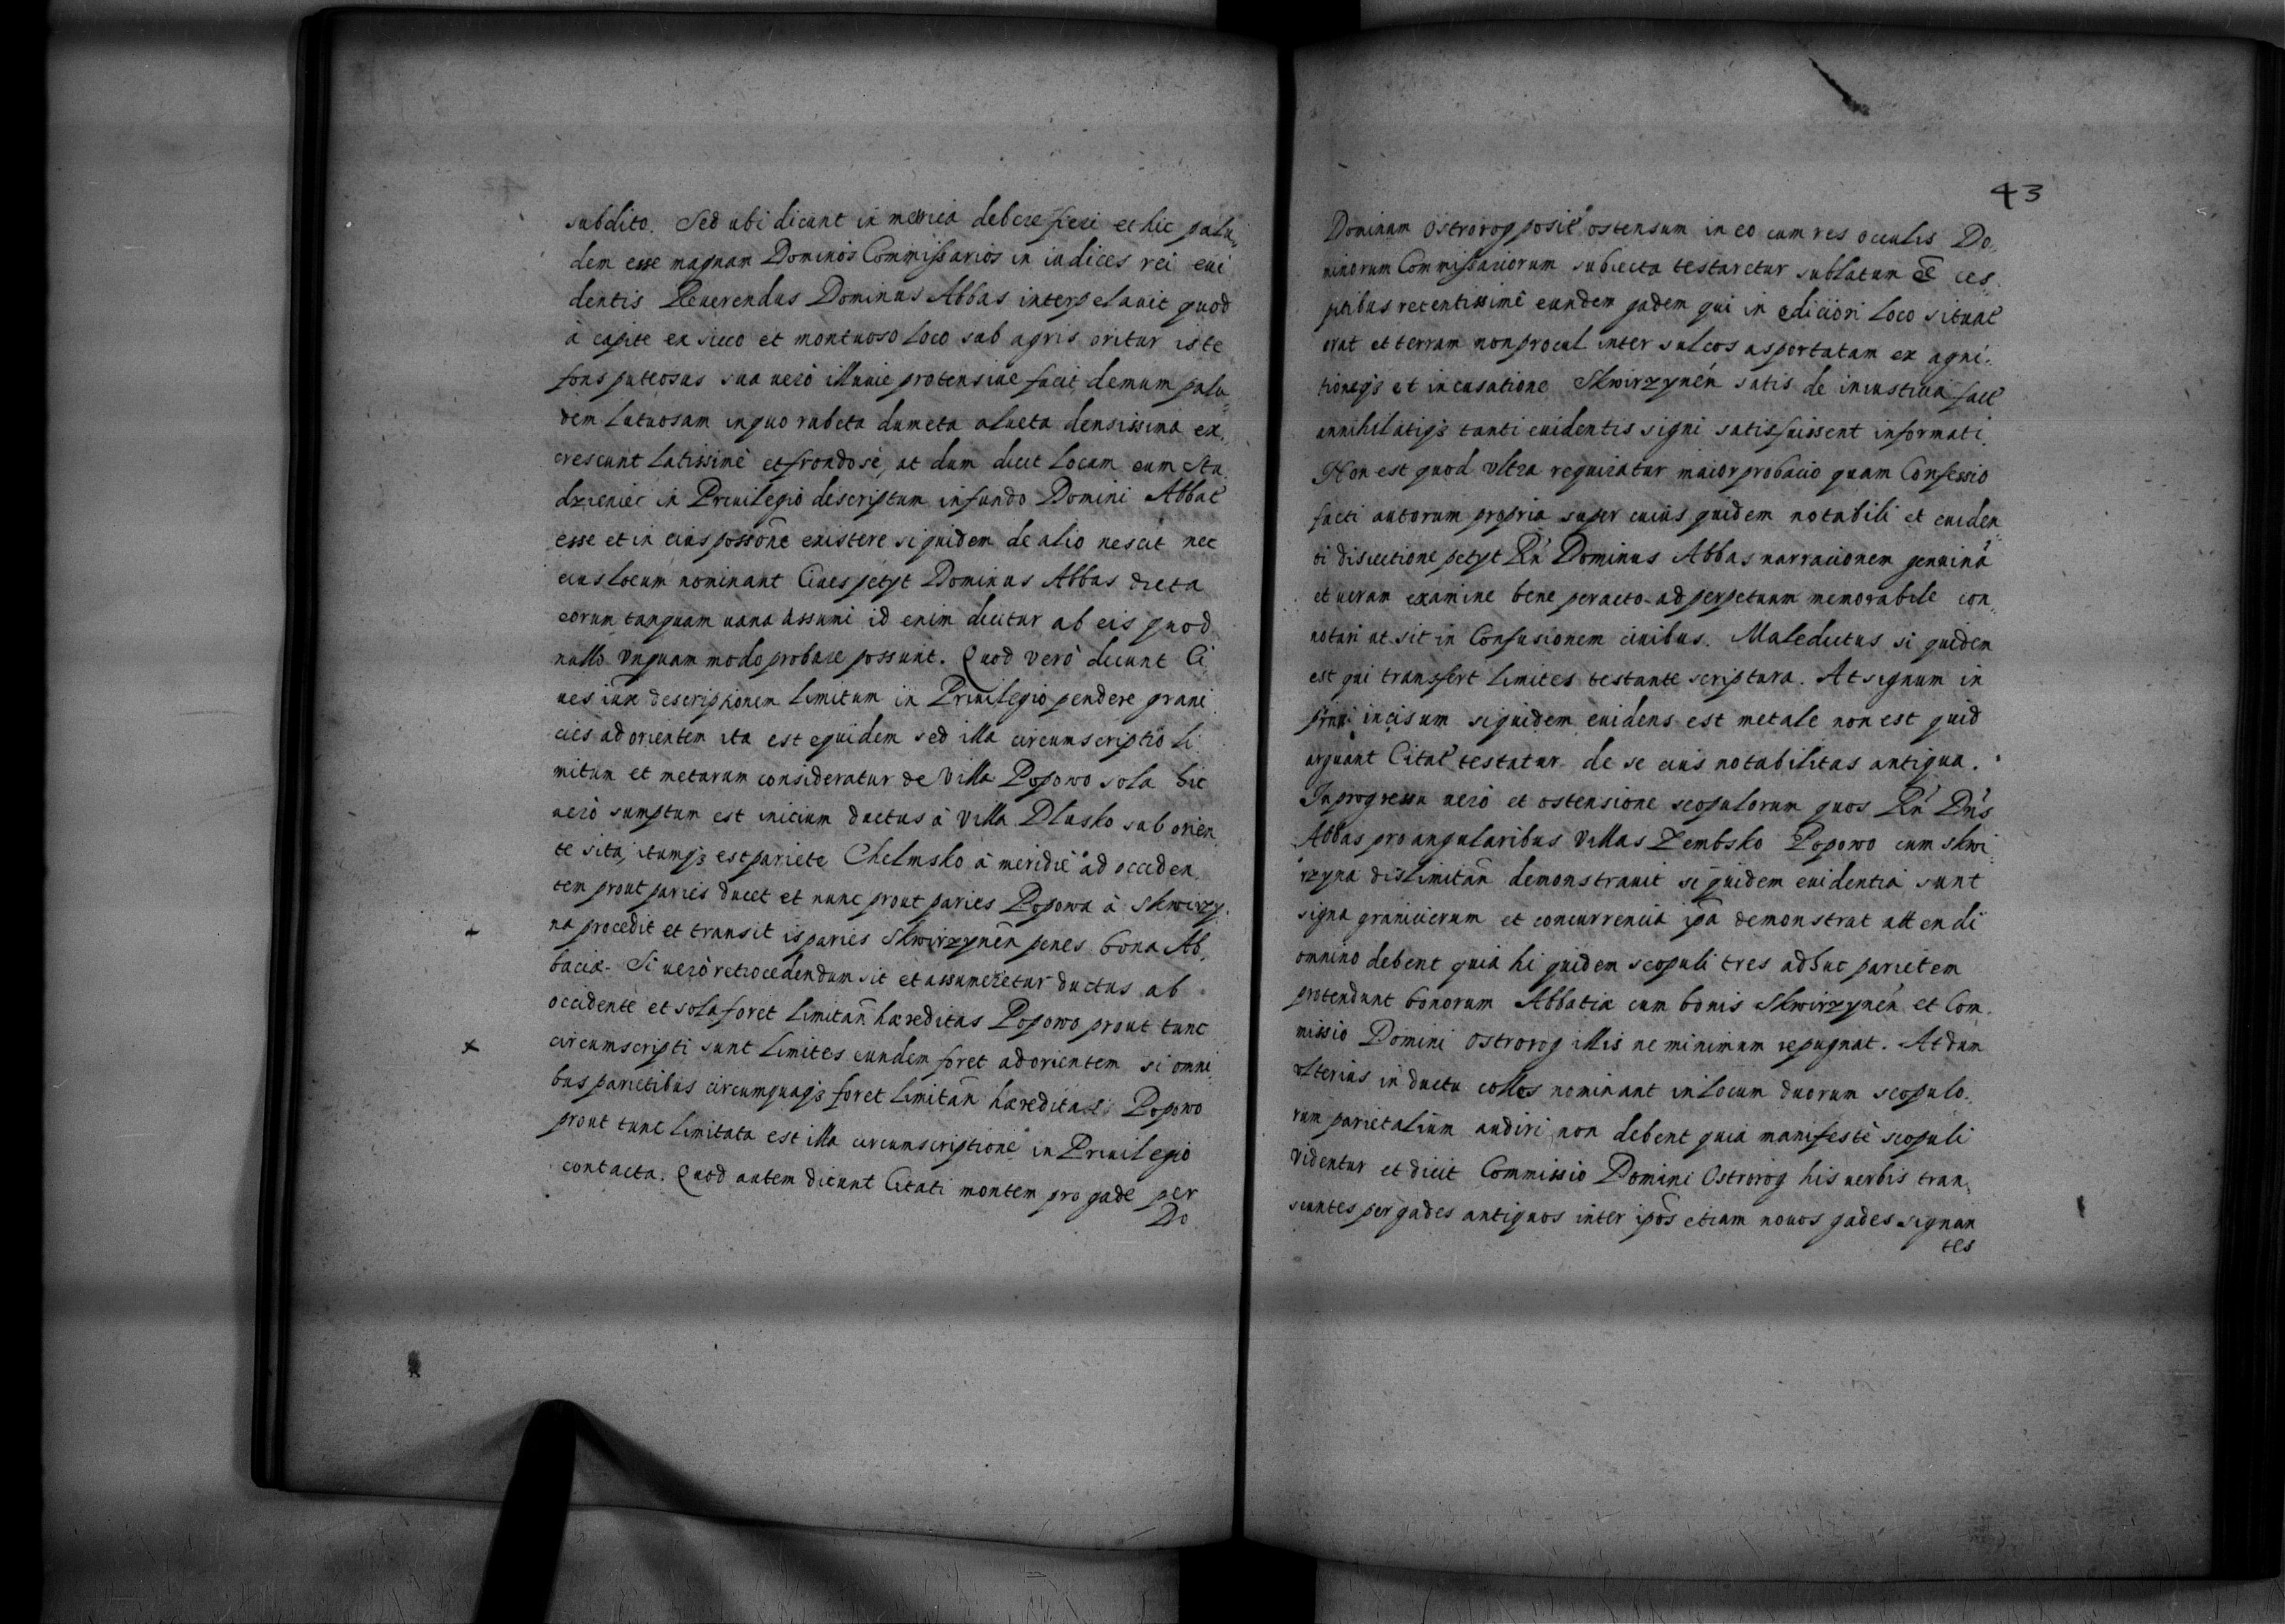 subdito. Sed ubi dicunt in merica debere fieri et hic palu„
dem esse magnam Dominos Commissarios in iudices rei evi
dentis Reuerendus Dominus Abbas interpelauit quod
à capite ex sicco et montuoso loco sub agris oritur iste
fons puteosus sua uerò illuuie protensiue facit demum palu„
dem lutuosam in quo rubeta dumeta alueta densissima ex„
crescunt latissimè et frondosè, at dum dicit locum eum Stu
dzieniec in Priuilegio descriptum in fundo Domini Abbat'
esse et in eius possõne existere siquidem de alio nescit nec
eius locum nominant Ciues petyt Dominus Abbas dicta
eorum tanquam uana assumi id enim dicitur ab eis quod
nullo vnquam modo probare possunt. Quod verò dicunt Ci
ues iux̃ descriptionem limitum in Priuilegio pendere grani
cies ad orientem ita est equidem sed illa circumscriptio li
mitum et metarum consideratur de Villa Popowo sola hic
uerò sumptum est inicium ductus à Villa Dlusko sub orien
te sita, itumq3 est pariete Chelmsko à meridie ad occiden„
tem prout paries ducet et nunc prout paries Popowa à Skwirzy„
na procedit et transit is paries Skwirzynẽn penes bona Ab„
baciæ. Si uerò retrocedendum sit et assumeretur ductus ab
occidente et sola foret limitañ hæreditas Popowo prout tunc
circumscripti sunt limites eundem foret ad orientem si omni
bus parietibus circumquaq3 foret limitañ hæreditas Popowo
prout tunc limitata est illa circumscriptione in Priuilegio
contacta. Quod autem dicunt Citati montem pro gade per
Do
43
Dominum Ostrorog posit' ostensum in eo cum res oculis Do„
minorum Commissariorum subiecta testaretur sublatum ẽe ces
pitibus recentissimè eundem gadem qui in ediciori loco situat'
erat et terram non procul inter sulcos asportatam ex agni„
tioneq3 et incusatione Skwirzynén satis de iniustitia fact'
annihilatiq3 tanti euidentis signi satis fuissent informati.
Non est quod vltra requiratur maior probacio quam Confessio
facti autorum propria super cuius quidem notabili et euiden
ti disiectione petyt Rñ Dominus Abbas narracionem genuinã
et ueram examine bene peracto ad perpetuam memorabile con„
notari ut sit in Confusionem ciuibus. Maledictus si quidem
est qui transfert limites testante scriptura. At signum in
pini incisum siquidem euidens est metale non est quid
arguant Citat' testatur de se eius notabilitas antiqua.
In progressu uerò et ostensione scopulorum quos Rñ Dñs
Abbas pro angularibus Villas Zembsko Popowo cum Skwi„
rzyna dislimitañ demonstrauit siquidem euidentia sunt
signa granicierum et concurrencia ipã demonstrat attendi
omnino debent quia hi quidem scopuli tres adhuc parietem
protendunt bonorum Abbatiæ cum bonis Skwirzynén et Com„
missio Domini Ostrorog illis ne minimum repugnat. At dum
vlterius in ductu colles nominant in locum duorum scopulo„
rum parietalium audiri non debent quia manifestè scopuli
videntur et dicit Commissio Domini Ostrorog his uerbis tran„
seuntes per gades antiquos inter ipõs etiam nouos gades signan
tes